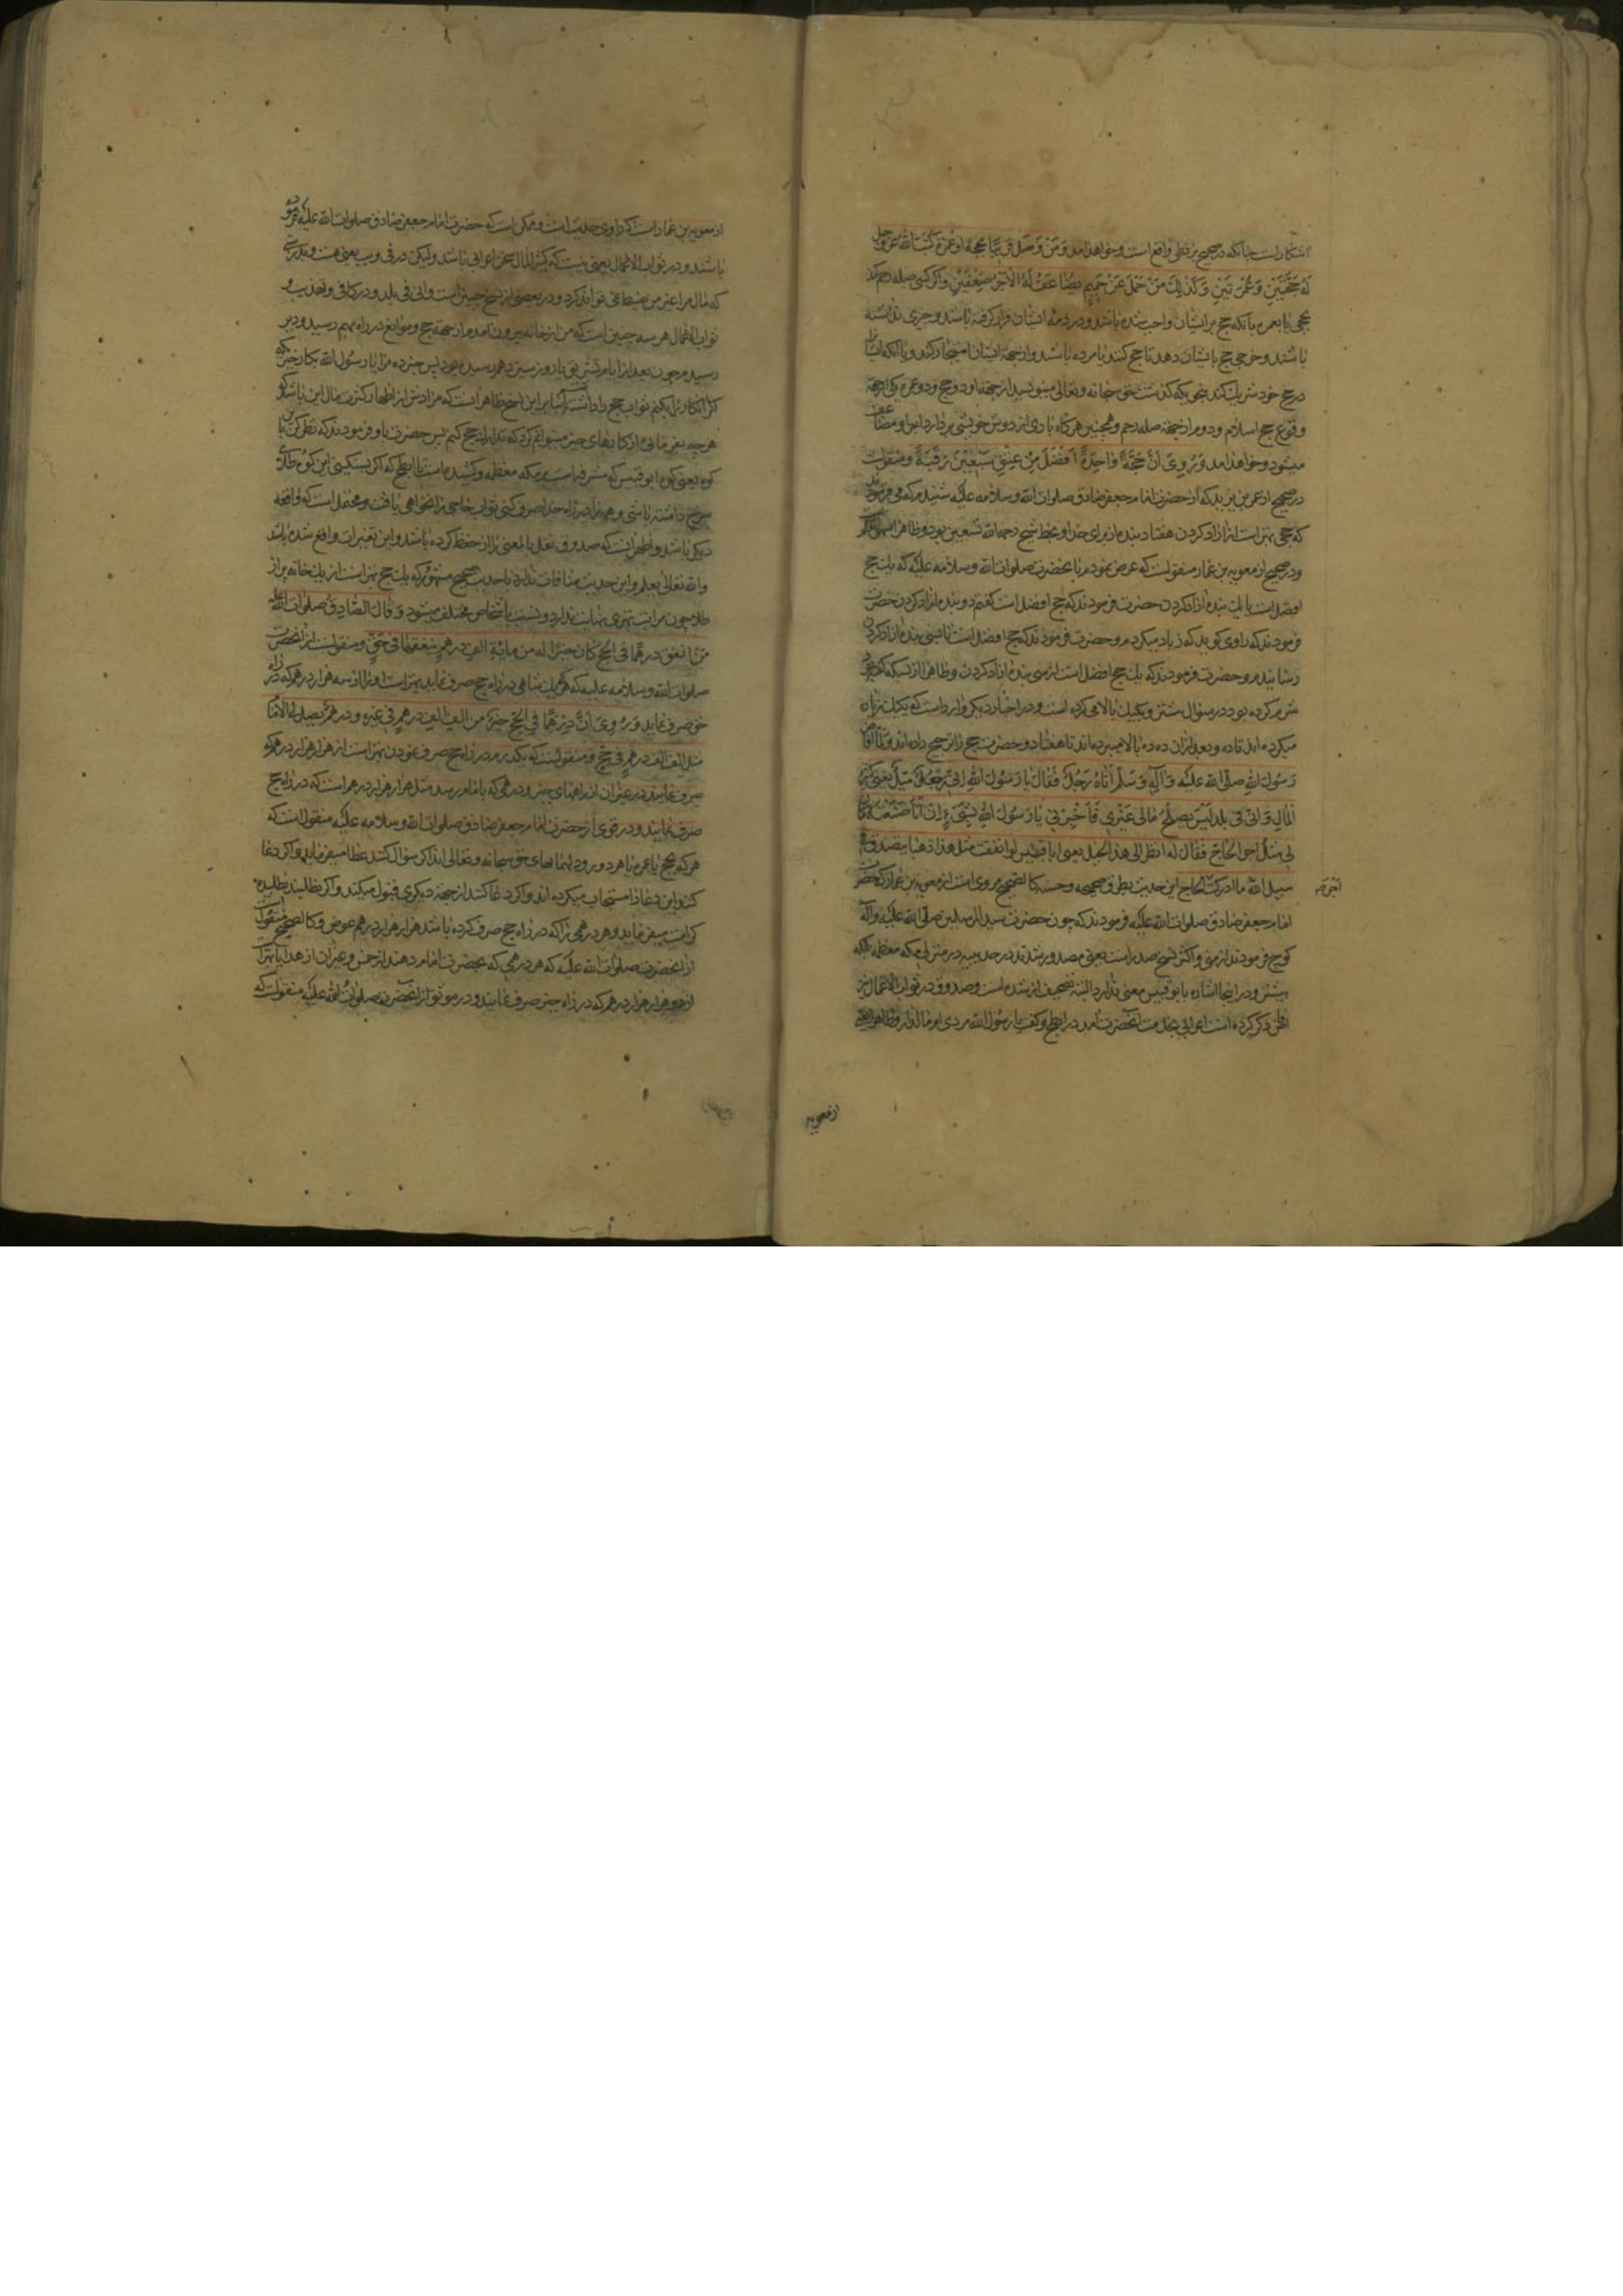 آشکار است چنانکه در صحیح بزنطی واقع است و خواهد آمد وَمَنْ وَصَلَ قَرِیبًا بِحَجَّةٍ اَوْ عُمْرَةٍ کَتَبَ اللهُ عَزَّ وَجَلَّ
لَهُ حَجَّتَیْنِ وَعُمْرَتَیْنِ وَکَذٰلِکَ مَنْ حَمَلَ عَنْ حَمِیمٍ یُضَاعَفُ لَهُ الْاَجْرُ ضِعْفَیْنِ و اگر کسی صله رحم کند
بحجی یا بعمره بآنکه حج بر ایشان واجب شده باشد و در ذمه ایشان قرار گرفته باشد و چیزی نداشته
باشند و خرجی حج بایشان دهد تا حج کنند یا مرده باشند و از جهة ایشان استیجار کند و یا آنکه ایشانرا
در حج خود شریک کند بنحویکه گذشت حق سبحانه و تعالی مینویسد از جهة او دو حج و دو عمره یکی از جهة
وقوع حج اسلام و دوم از جهة صله رحم و همچنین هرگاه باری از دوش خویشی بردارد اجر او مضاعف
میشود و خواهد آمد وَرُوِیَ اَنَّ حَجَّةً وَاحِدَةً اَفْضَلُ مِنْ عِتْقِ سَبْعِیْنَ رَقَبَةً و منقولست
در صحیح از عمر بن یزید که از حضرت امام جعفر صادق صلوات الله وسلامه علیه شنیدم که می فرمودند
که حجی بهتر است از آزاد کردن هفتاد بنده از برای خدا و بخط شیخ رحمه الله تسعین بود و ظاهرا
ودر صحیح از معویه بن عمار منقولست که عرض نمودم بآنحضرت صلوات الله وسلامه علیه که یک حج
افضل است یا یک بنده آزاد کردن حضرت فرمودند که حج افضل است گفتم دو بنده آزاد کردن حضرت
فرمودند که راوی گوید که زیاد میکردم و حضرت فرمودند که حج افضل است تا بسی بنده آزاد کردن
رسانیدم و حضرت فرمودند که یک حج افضل است از سی بنده آزاد کردن و ظاهرا از بسکه
شرم کرده بود در سؤال بیشتر و یکیک بالا می کرده است و در اخبار دیگر وارد است که یکیک زیاده
میکرده اند تا ده و بعد از آن ده ده بالا میبرده اند تا هفتاد و حضرت حج را ترجیح داده اند وَلَمَّا اَفَاضَ
رَسُولُ اللهِ صَلَّی الله عَلَیْهِ وَآلِهِ وَسَلَّمَ اَتَاهُ رَجُلٌ فَقَالَ یَا رَسُولَ اللهِ اِنّی رَجُلٌ مَیِّلٌ یعنی کثیر
الْمَالِ وَاِنّی فی بَلَدٍ لَیْسَ یُصْلِحُ مَالی غَیْری فَاَخْبِرْنی یَا رَسُولَ اللهِ بِشَیْءٍ اِنْ اَنَا صَنَعْتُهُ کَانَ
لی مِثْلُ اَجْرِ الْحَاجِّ فَقَالَ لَهُ انظر الی هذا الجبل یعنی ابا قبیس لو انفقت مثل هذا ذهبا یتصدق به فی
سبیل الله ما ادرکت الحاج این حدیث بطرق صحیحه و حسنه کالصحیح مروی است از معویه بن عمار که حضرت
اجر
امام جعفر صادق صلوات الله علیه فرمودند که چون حضرت سید المرسلین صلی الله علیه وآله
کوچ فرمودند از منی و اکثر نسخ صد راست یعنی مصدود شدند در حدیبیه در منزلی مکه معظمه بلکه
بیشتر و در اینجا اشاره بابو قبیس معنی ندارد البته تصحیف ازیشده است و صدوق در ثواب الاعمال نیز
افاض ذکر کرده است اعرابی بخدمت آنحضرت آمد در ابطح و گفت یا رسول الله مردی ام مالدار و ظاهرا
از معویه
از معویه بن عمار است که راوی حدیث است و ممکن است که حضرت امام جعفر صادق صلوات الله علیه فرموده
باشند و در ثواب الاعمال یعنی نیست که کثیر المال سخن اعرابی باشد ولیکن در فی و یب یعنی هست و بدرستی
که مال مرا غیر من ضبط نمی تواند کرد و در بعضی از نسخ چنین است وانی فی بلد و در کافی و تهذیب و
ثواب الاعمال هر سه چنین است که من از خانه بیرون آمدم از جهة حج و موانع در راه بهم رسید و دیر
رسیدم چون بعد از ایام تشریق یا روز سیزدهم رسیده بود پس خبر ده مرا یا رسول الله بکار خیری که
اگر آنکار را بکنم ثواب حج را داشته باشم بنابر این نسخ ظاهر آنست که مرادش از اظهار کثرت مال این باشد که
هرچه بفرمائی از کارهای خیر میتوانم کرد که تدارک حج کنم پس حضرت باو فرمودند که نظر کن باین
کوه یعنی کوه ابو قبیس که مشرف است بمکه معظمه و کشیده است تا ابطح که اگر بسنگینی این کوه طلای
سرخ داشته باشی و همه را در راه خدا صرف کنی ثواب حاجی را نخواهی یافت و محتمل است که واقعه
دیگر باشد و اظهر آنست که صدوق نقل بالمعنی را از حفظ کرده باشد و این تغییرات واقع شده باشد
والله تعالی یعلم و این حدیث منافات ندارد با حدیث صحیح مشهور که یک حج بهتر است از یک خانه پر از
طلا چون مراتب بهتری نهایت ندارد و نسبت باشخاص مختلف میشود وَقَالَ الصَّادِقُ صَلَوَاتُ اللهِ عَلَیْهِ
مَنْ اَنْفَقَ دِرْهَمًا فی الْحَجِّ کَانَ خَیْرًا لَهُ مِنْ مِائَةِ اَلْفِ دِرْهَمٍ یُنْفِقُهَا فی حَقٍّ و منقولست از آنحضرت
صلوات الله وسلامه علیه که هرکه یک شاهی در راه حج صرف نماید بهتر است او را از سه هزار درهم که در راه
حق صرف نماید وَرُوِیَ اَنَّ دِرْهَمًا فی الْحَجِّ خَیْرٌ مِنْ اَلْفِ اَلْفِ دِرْهَمٍ فی غَیْرِهِ و درهم یصل الی الامام
مثل الف الف درهم فی حج و منقولست که یکدرم در راه حج صرف نمودن بهتر است از هزار هزار درهم که
صرف نمایند در غیر آن از راههای خیر و درهمی که بامام رسد مثل هزار هزار درهم است که در راه حج
صرف نمایند و در قوی از حضرت امام جعفر صادق صلوات الله وسلامه علیه منقولست که
هرکه بحج یا عمره یا هر دو رود مهمانهای حق سبحانه وتعالی اند اگر سؤال کنند عطا میفرماید و اگر دعا
کنند این دعا را مستجاب میکرده اند و اگر دعا کنند از جهة دیگری قبول میکند و اگر نطلبند نطلبیده
کرامت میفرماید و هر درهمی را که در راه حج صرف کرده باشند هزار هزار درهم عوض و کالصحیح منقولست
از آنحضرت صلوات الله علیه که هر درهمی که بحضرت امام دهند از خمس و غیر آن از هدایا بهتر است
از دو هزار هزار درهم که در راه خیر صرف نمایند و در موثق از آنحضرت صلوات الله علیه منقولست که